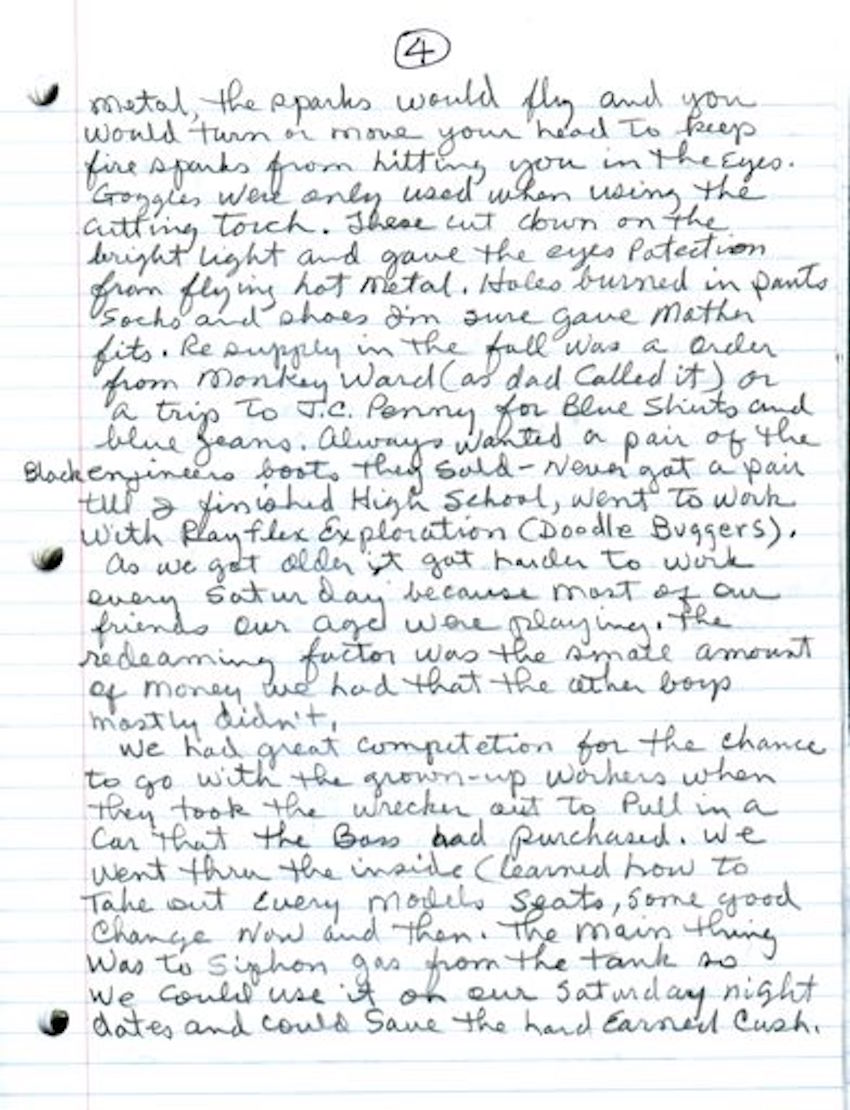 4
metal, the sparks would fly and you
would turn or move your head to keep
fire sparks from hitting you in the Eyes.
Goggles were only used when using the
cutting torch. These cut down on the
bright light and gave the eyes Potection
from flying hot metal. Holes burned in pants
socks and shoes I'm sure gave Mother
fits. Re supply in the fall was a order
from Monkey Ward (as dad Called it) or
a trip to J.C. Penny for Blue Shirts and
blue jeans. Always wanted a pair of the
Black engineers boots they sold - Never got a pair
till I finished High School, went to work
with Rayflex Exploration (Doodle Buggers).
As we got older it got harder to work
every Saturday because most of our
friends our age were playing. The
redeaming factor was the small amount
of money we had that the other boys
mostly didn't.
We had great competetion for the chance
to go with the grown-up workers when
they took the wrecker out to Pull in a
Car that the Boss had purchased. We
went thru the inside (learned how to
Take out Every Models Seats, Some good
Change Now and then. The main thing
was to Siphon gas from the tank so
we could use it on our Saturday night
dates and could Save the hard Earned Cash.